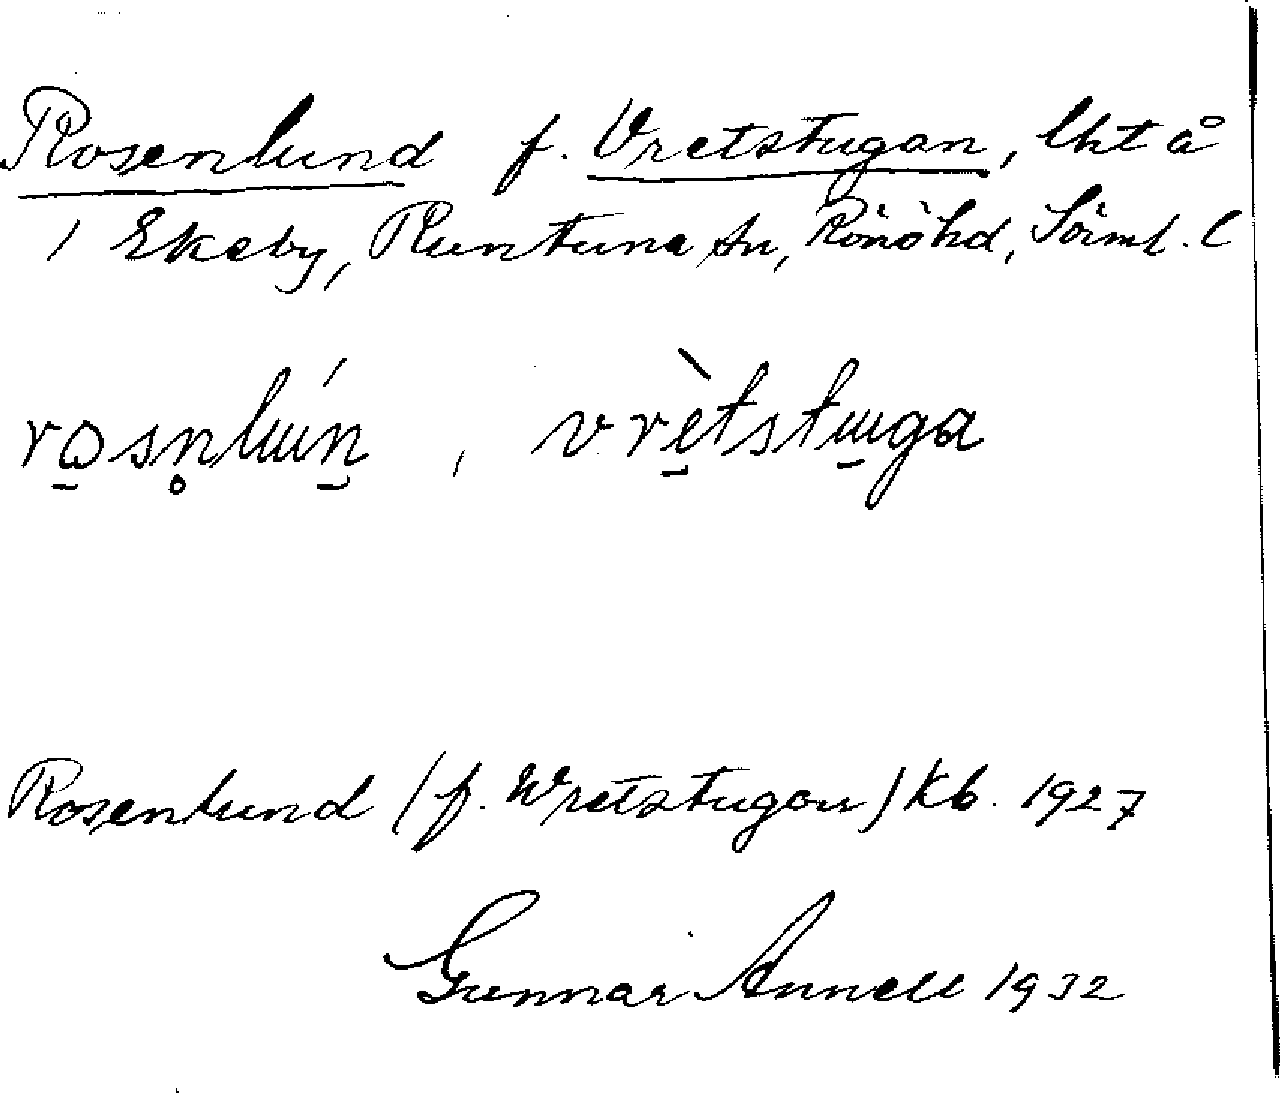 Rosenlund f. Vretstugan, lht å
1 Ekeby, Runtuna sn, Rönöhd, Söiml. l
rosn̥lun, vrètstuga
Rosenlund (f. Wretstugan) Kb. 1927
Gunnar Annell 1932